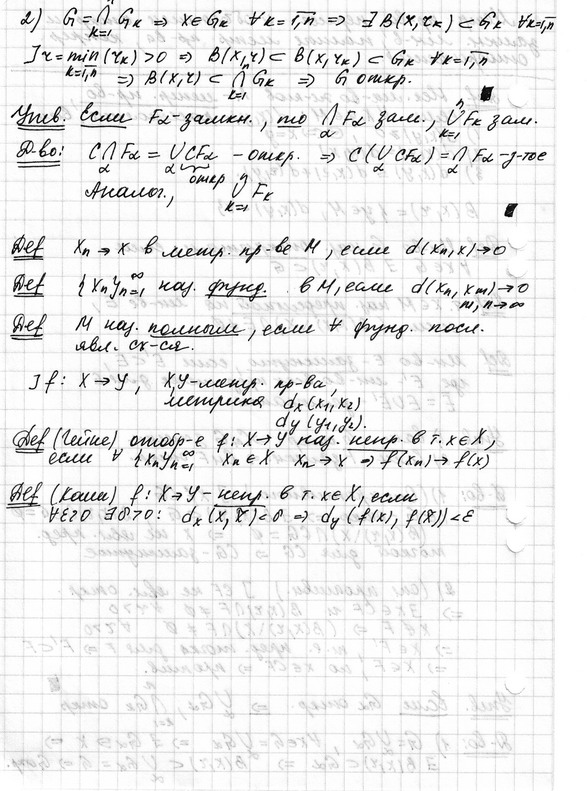 2) G = ⋂_{k=1}^{n} G_k ⇒ x ∈ G_k ∀k=1,n̅ ⇒ ∃ B(x, r_k) ⊂ G_k ∀k=1,n̅
] r = min_{k=1,n̅} (r_k) > 0 ⇒ B(x, r) ⊂ B(x, r_k) ⊂ G_k ∀k=1,n̅
⇒ B(x, r) ⊂ ⋂_{k=1}^{n} G_k ⇒ G откр.
Утв. Если F_α - замкн., то ⋂_α F_α зам., ⋃_{k=1}^{n} F_k зам.
Д-во: C⋂_α F_α = ⋃_α CF_α - откр. ⇒ C(⋃_α CF_α) = ⋂_α F_α - з-тое
откр
Аналог., ⋃_{k=1}^{n} F_k
Def x_n → x в метр. пр-ве M, если d(x_n, x) → 0
Def {x_n}_{n=1}^{∞} наз. фунд. в M, если d(x_n, x_m) → 0
m, n → ∞
Def M наз. полным, если ∀ фунд. посл.
явл. сх-ся.
] f: X → Y, X, Y - метр. пр-ва,
метрика d_x(x_1, x_2)
d_y(y_1, y_2).
Def (Гейне) отобр-е f: X → Y наз. непр. в т. x ∈ X,
если ∀ {x_n}_{n=1}^{∞} x_n ∈ X x_n → x ⇒ f(x_n) → f(x)
Def (Коши) f: X → Y - непр. в т. x ∈ X, если
∀ε>0 ∃δ>0: d_x(x, x̃) < δ ⇒ d_y(f(x), f(x̃)) < ε